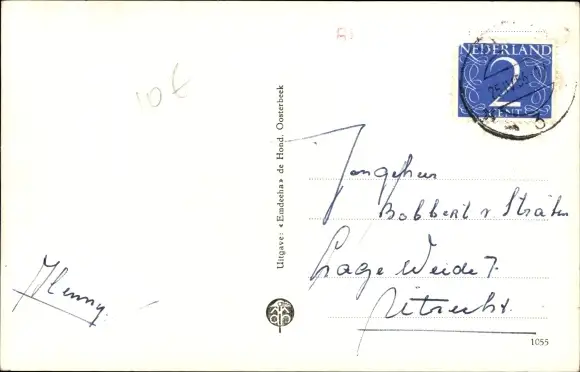 10 €
NEDERLAND
2
CENT
3
Uitgave: «Emdeeha» de Hond, Oosterbeek
Jongeheer
Bobbert v Straten
Lage Weide 7.
Utrecht.
Henny.
1055